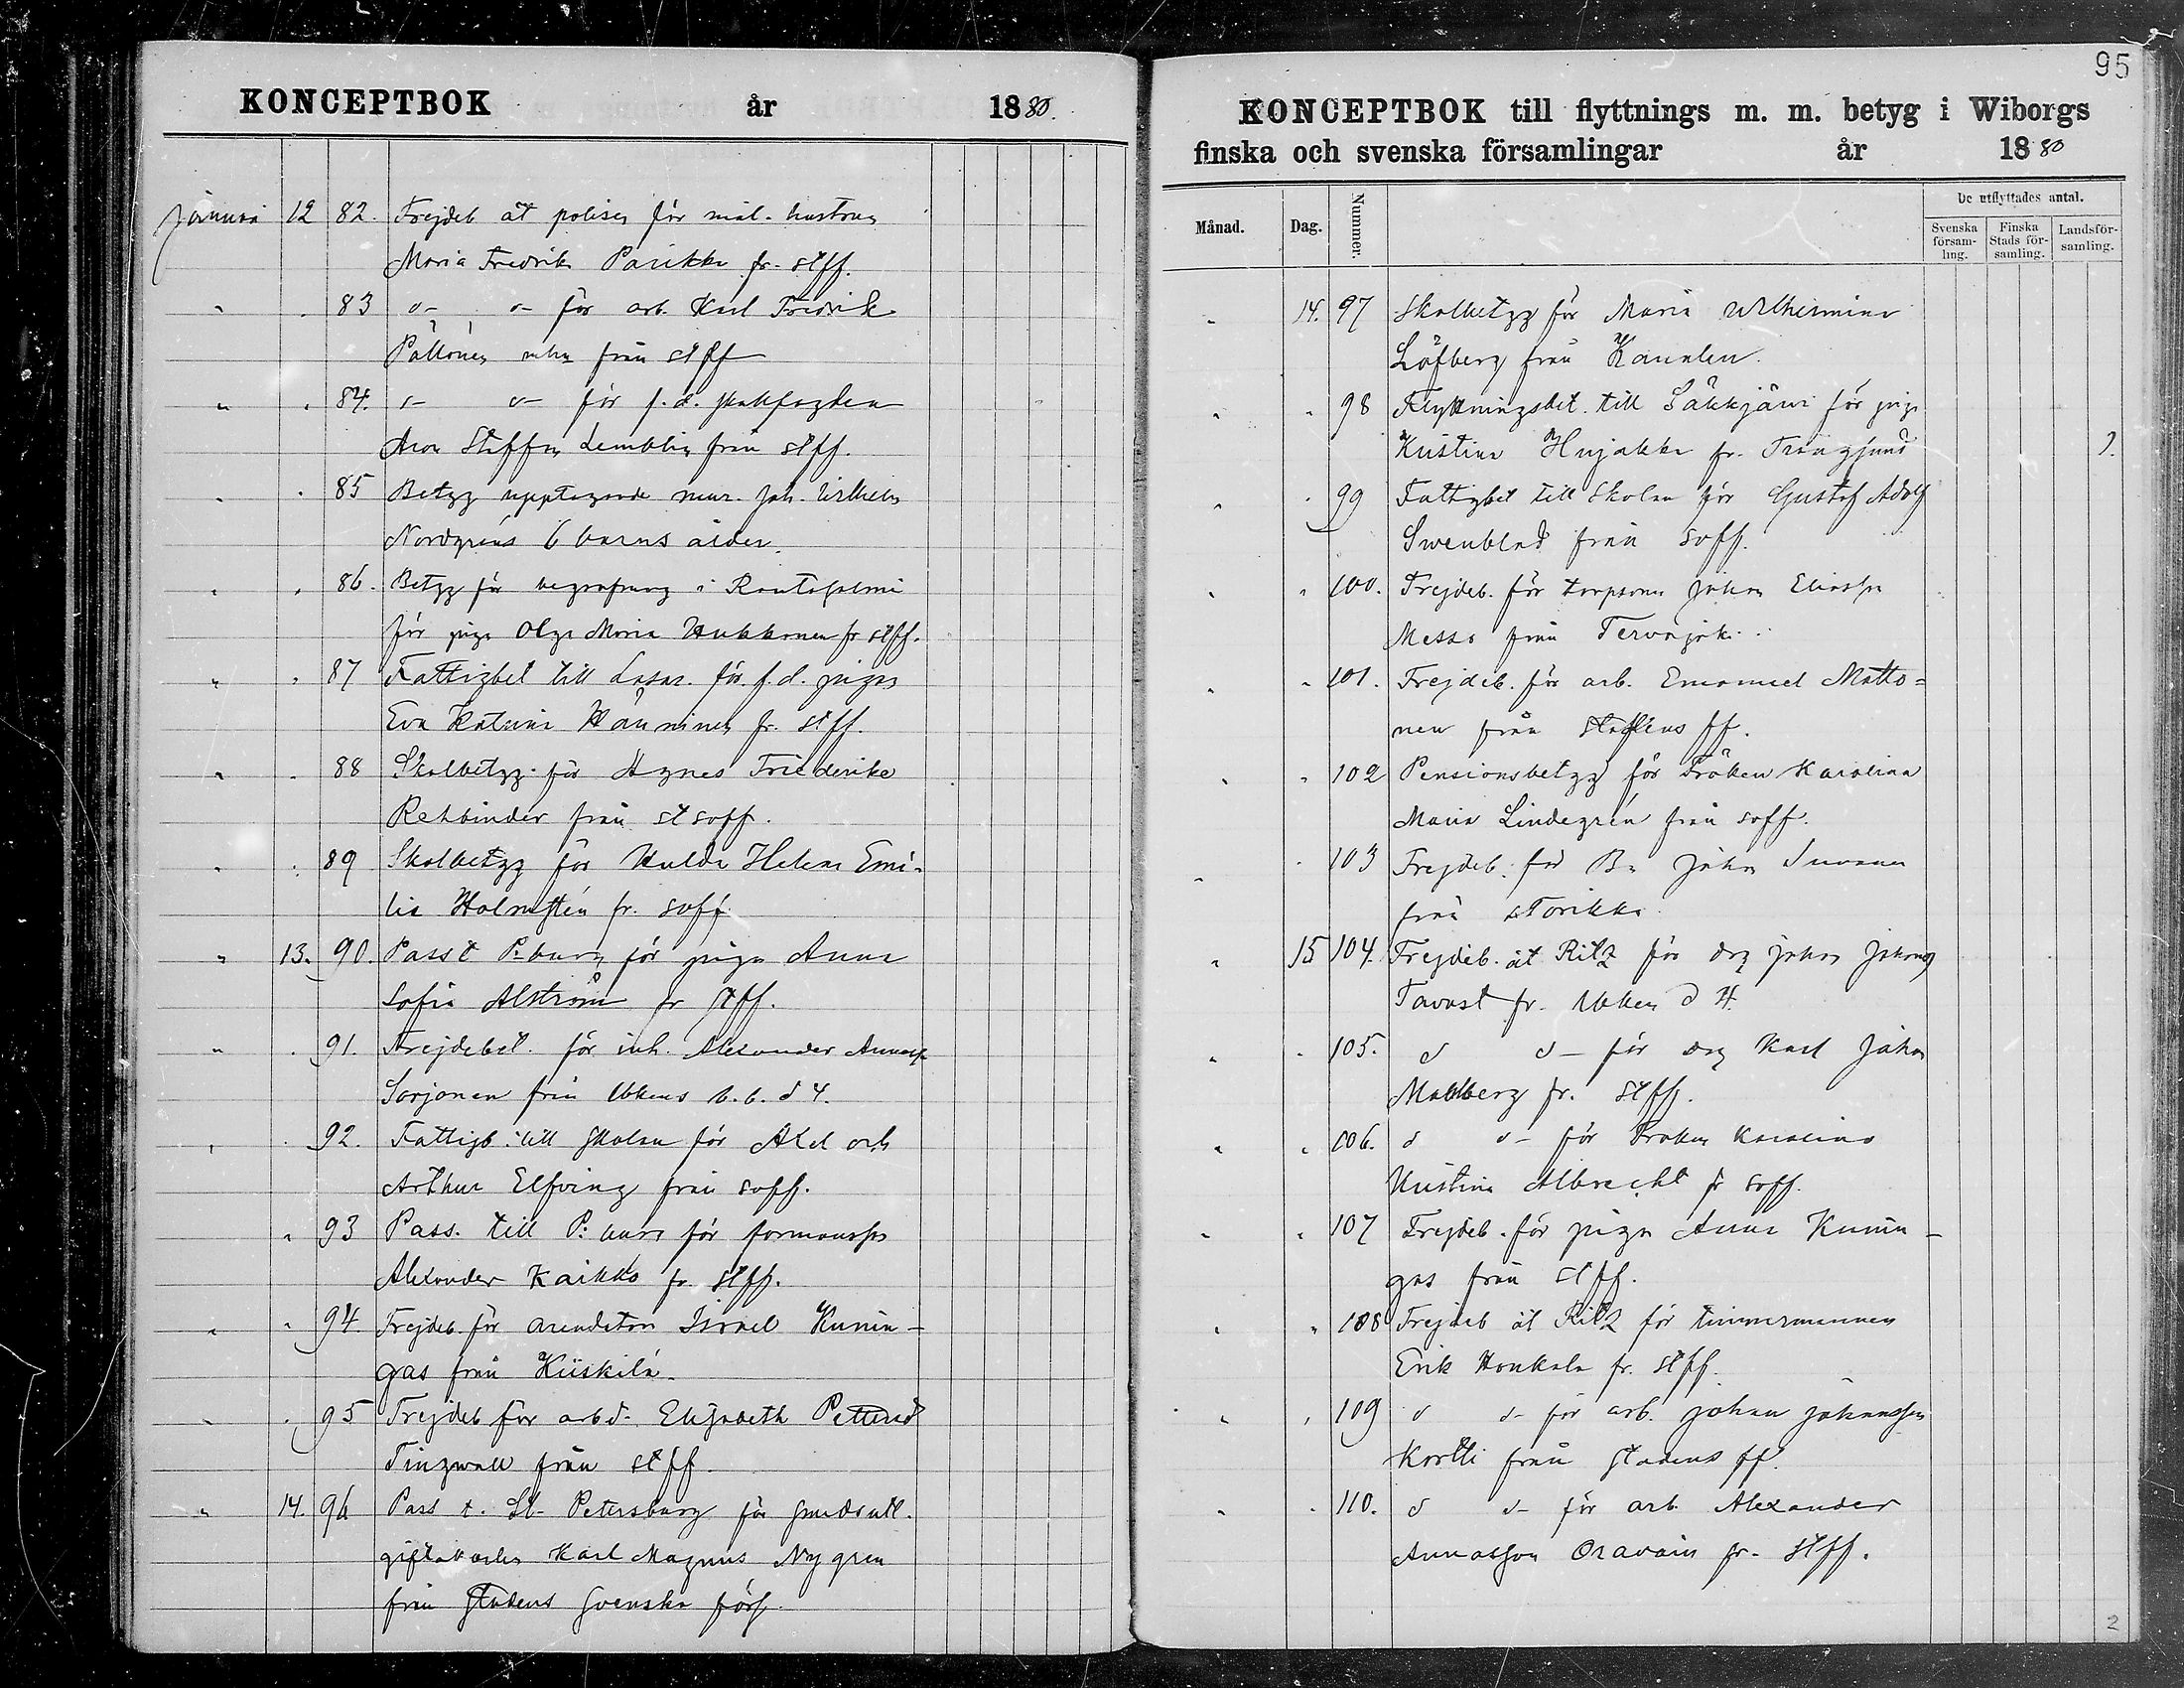 KONCEPTBOK år 1880.
Januari 12 82. Frejdeb åt polisen för mål. hustrun
Maria Fredrika Parikka fr. stff.
" . 83 d- d- för arb. Karl Fredrik
Pällönen från stff
" " 84. d- d- för f.d.
Aron Steffan Lemblin från stff.
" . 85 Betyg upptagande mur. Joh. Wilhelm
Nordgréns 6 barns ålder.
" . 86. Betyg för begrafning i Rantasalmi
för piga Olga Maria Hukkanen fr stff.
" . 87 Fattigbet till Lasar. för f.d. pigan
Eva Katarina Hänninen fr. stff.
" . 88 Skolbetyg för Agnes Friederike
Rehbinder från st soff.
" . 89 Skolbetyg för Hulda Helena Emi-
lia Holmstén fr. soff
" 13. 90. Pass t P:burg för pigan Anna
Sofia Alström fr stff.
" . 91. Frejdebet. för inh. Alexander Annass
Sorjonen från b.b. d 4.
" . 92. Fattigb. till skolan för Axel och
Arthur Elfving från soff.
" 93 Pass. till P:burg för formanss
Alexander Kaikko fr. stff.
" " 94. Frejdeb. för arendatorn Israel Kunin-
gas från Kiiskilä.
" . 95 Frejdeb för arb d. Elisabeth Pettersd
Tingwall från stff.
" 14. 96 Pass t. St. Petersburg för smedsutl.
gifta karlen Karl Magnus Nygren
från Stadens Svenska förs.
95
KONCEPTBOK till flyttnings m. m. betyg i Wiborgs
finska och svenska församlingar år 1880
Månad. Dag. Nummer. De utflyttades antal.
Svenska försam-ling. Finska Stads för-samling. Landsför-samling.
" 14. 97 Skolbetyg för Maria Wilhelmina
Löfberg från Kanalen.
" " 98 Flyttningsbet. till Säkkjärvi för piga
Kristina Hujakka fr. Trångsund 1.
" . 99 Fattigbet till Skolan för Gustaf Adolf
Swenblad från soff.
" " 100. Frejdeb. för torpsonen Johan Eliasson
Messo från Tervajoki.
" " 101. Frejdeb. för arb. Emanuel Matto=
nen från Stadens ff.
" " 102 Pensionsbetyg för Fröken Karolina
Maria Lindegrén från soff.
" . 103 Frejdeb. för Bn Johan Suvanen
från Storikka
" 15 104. Frejdeb. åt Ritz för drg Johan Johansson
Tavast fr. d 4.
" . 105. d d- för drg Karl Johan
Mahlberg fr. stff.
" " 106. d d- för Fröken Karolina
Kristina Albrecht fr soff.
" " 107 Frejdeb. för pigan Anna Kunin-
gas från stff.
" " 108 Frejdeb åt Ritz för timmermannen
Erik Honkala fr. stff.
" , 109 d d- för arb. Johan Johansson
Kortti från Stadens ff.
" . 110. d d- för arb. Alexander
Annasson Oravain fr. stff.
2